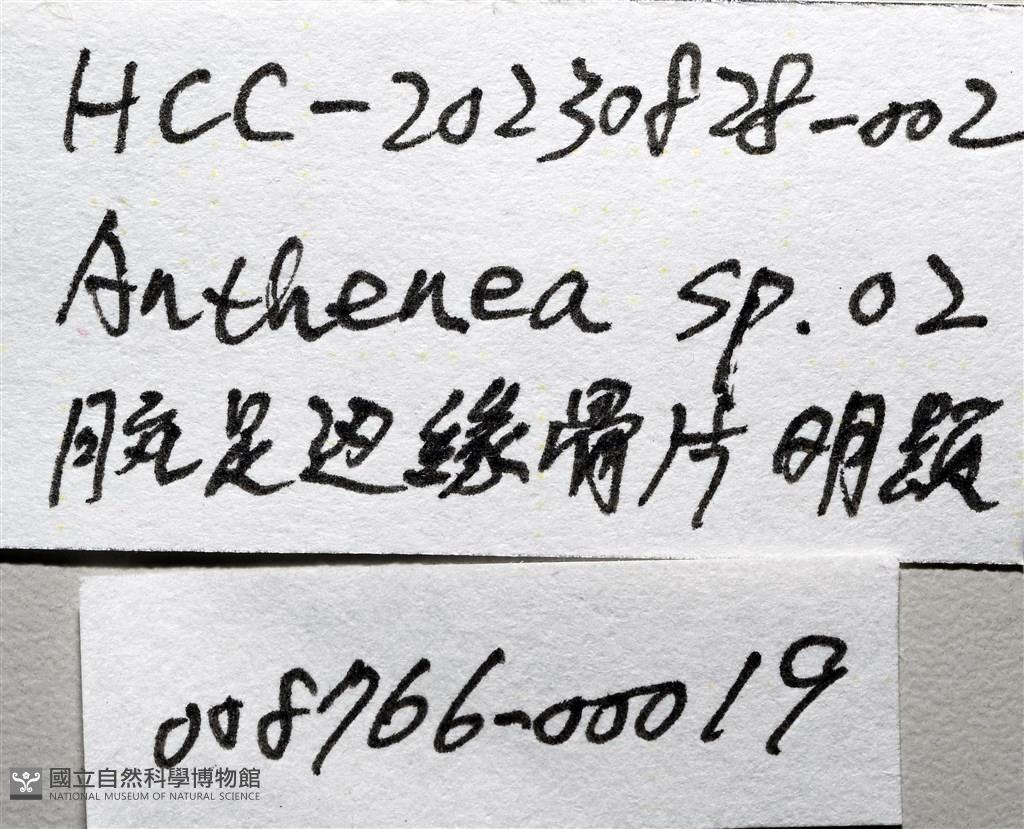 HCC-20230828-002
Anthenea sp. 02
腕足边緣骨片明顯
008766-00019
國立自然科學博物館
NATIONAL MUSEUM OF NATURAL SCIENCE